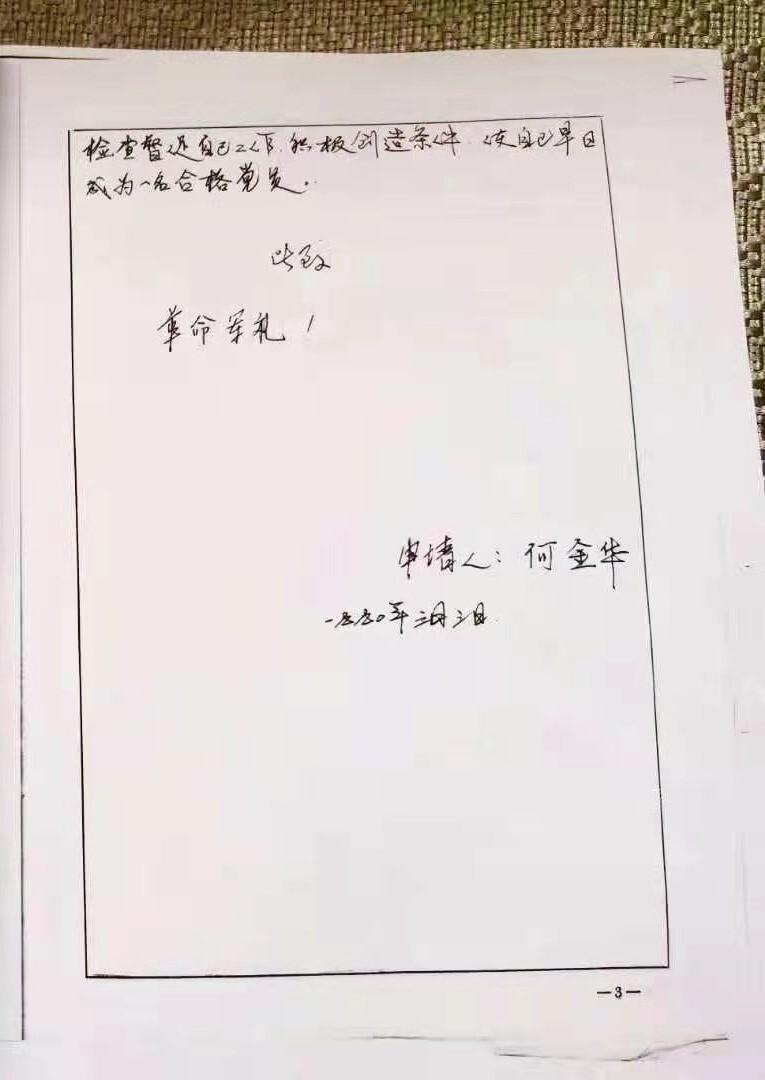 检查督促自己工作.积极创造条件.使自己早日
成为一名合格党员.
此致
革命军礼！
申请人：何金华
一九九〇年三月三日.
—3—